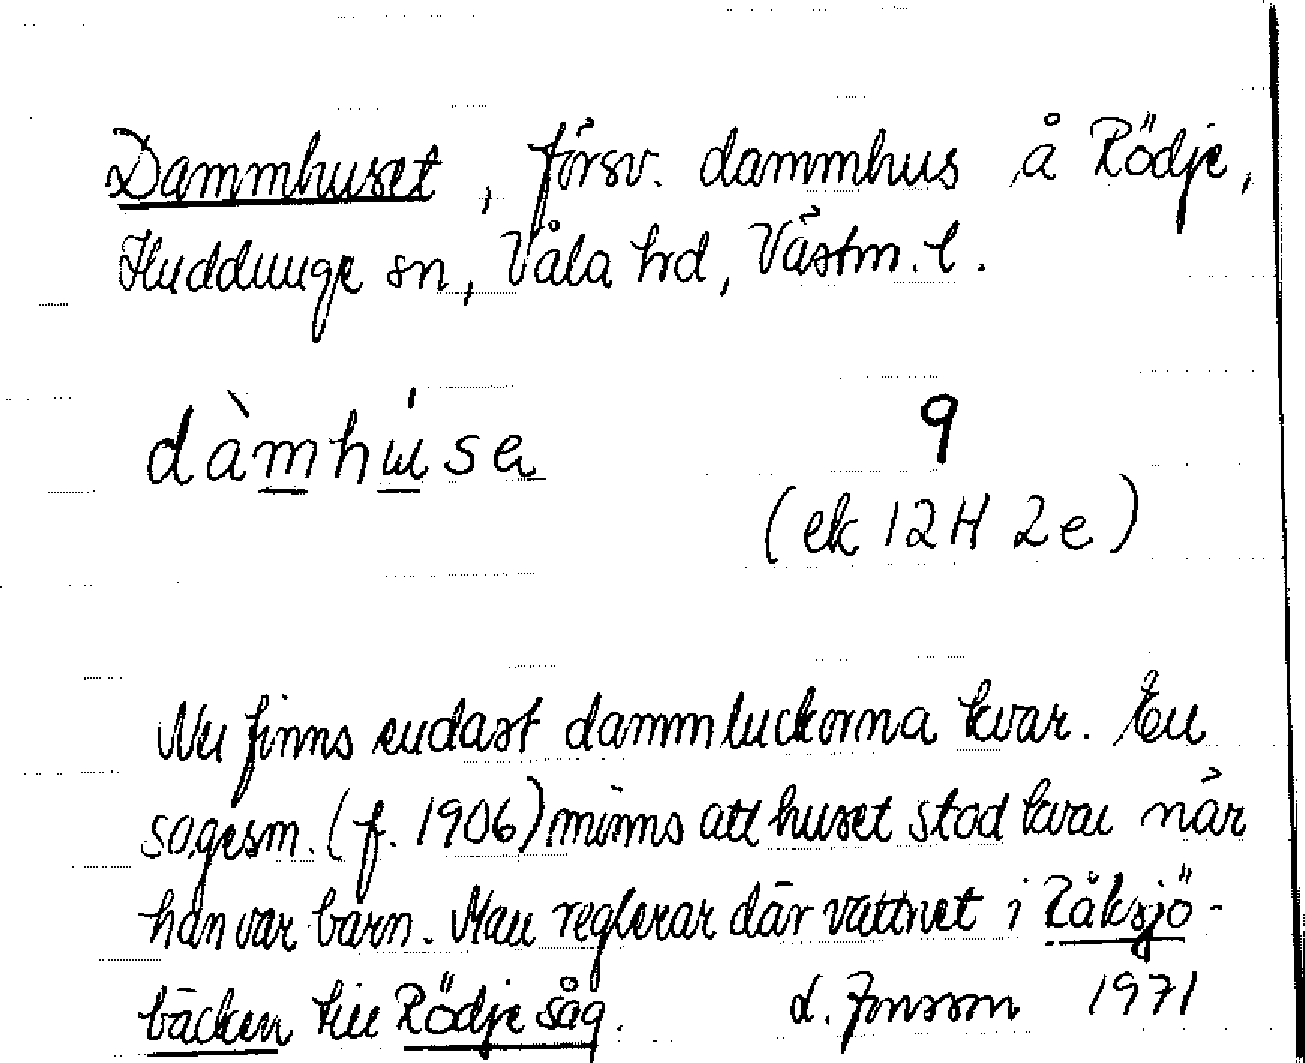 Dammhuset, försv. dammhus å Rödje,
Huddunge sn, Våla hd, Västm. l.
dàmhùsa 9
(ek 12H 2e)
Nu finns endast dammluckorna kvar. En
sagesm. (f. 1906) minns att huset stod kvar när
han var barn. Man reglerar där vattnet i Råksjö-
bäcken till Rödje såg. L. Jonsson 1971